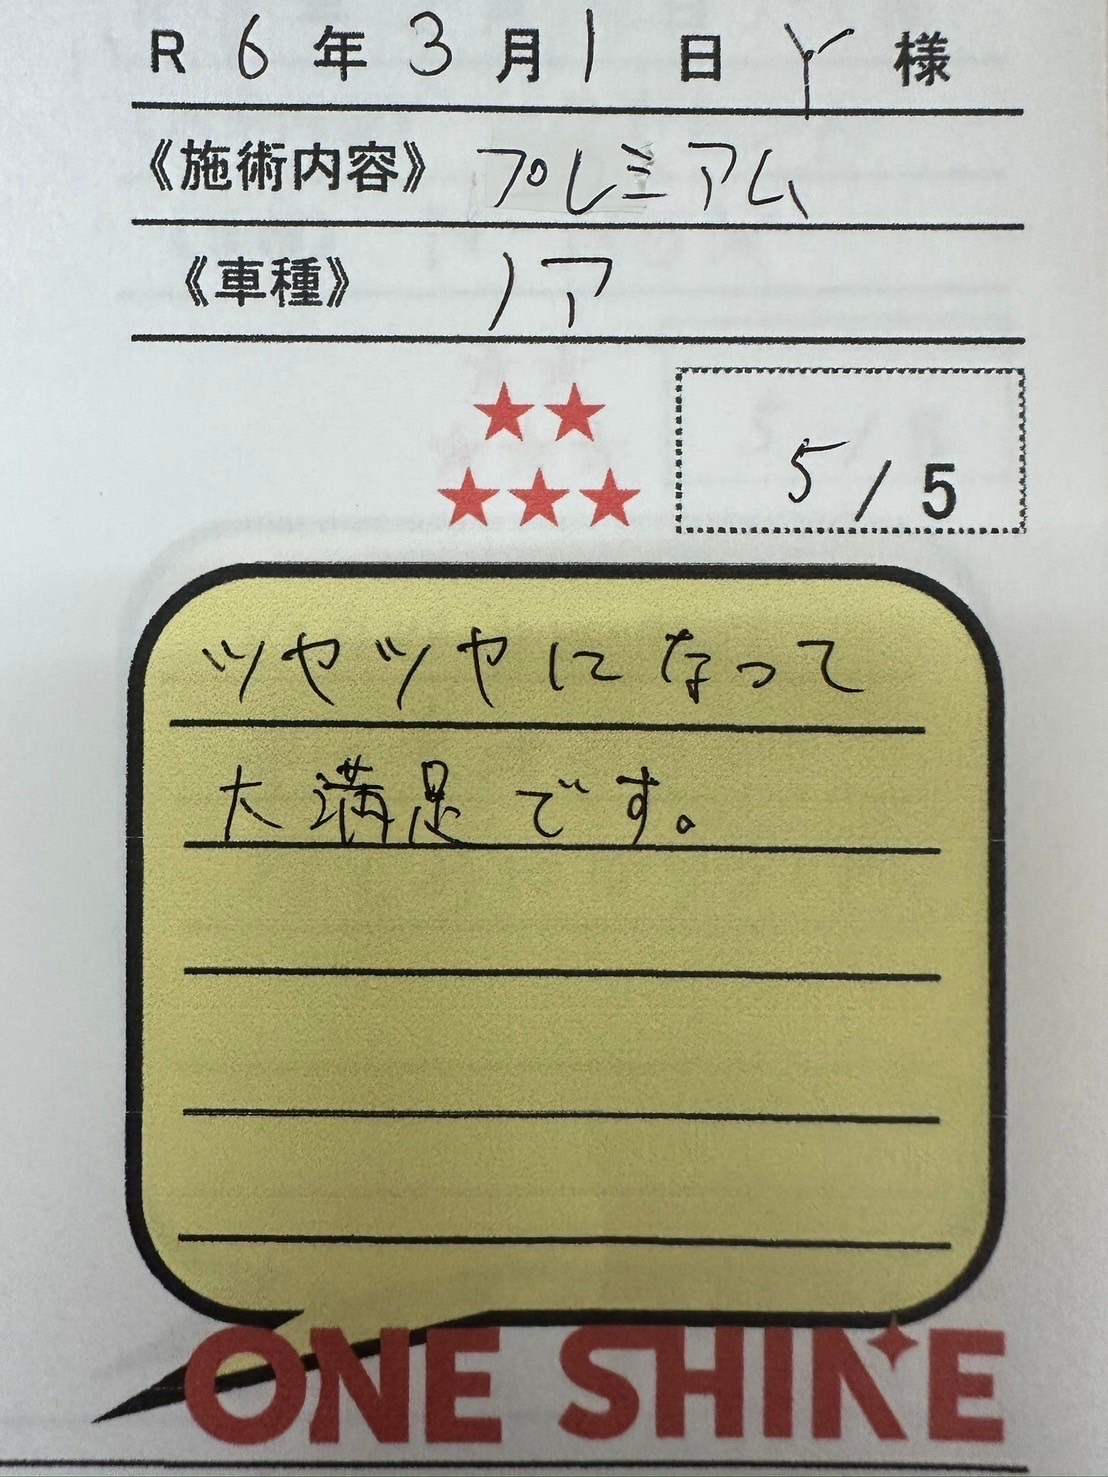 R 6 年 3 月 1 日 Y 様
《施術内容》 プレミアム
《車種》 ノア
5 / 5
ツヤツヤになって
大満足です。
ONE SHINE